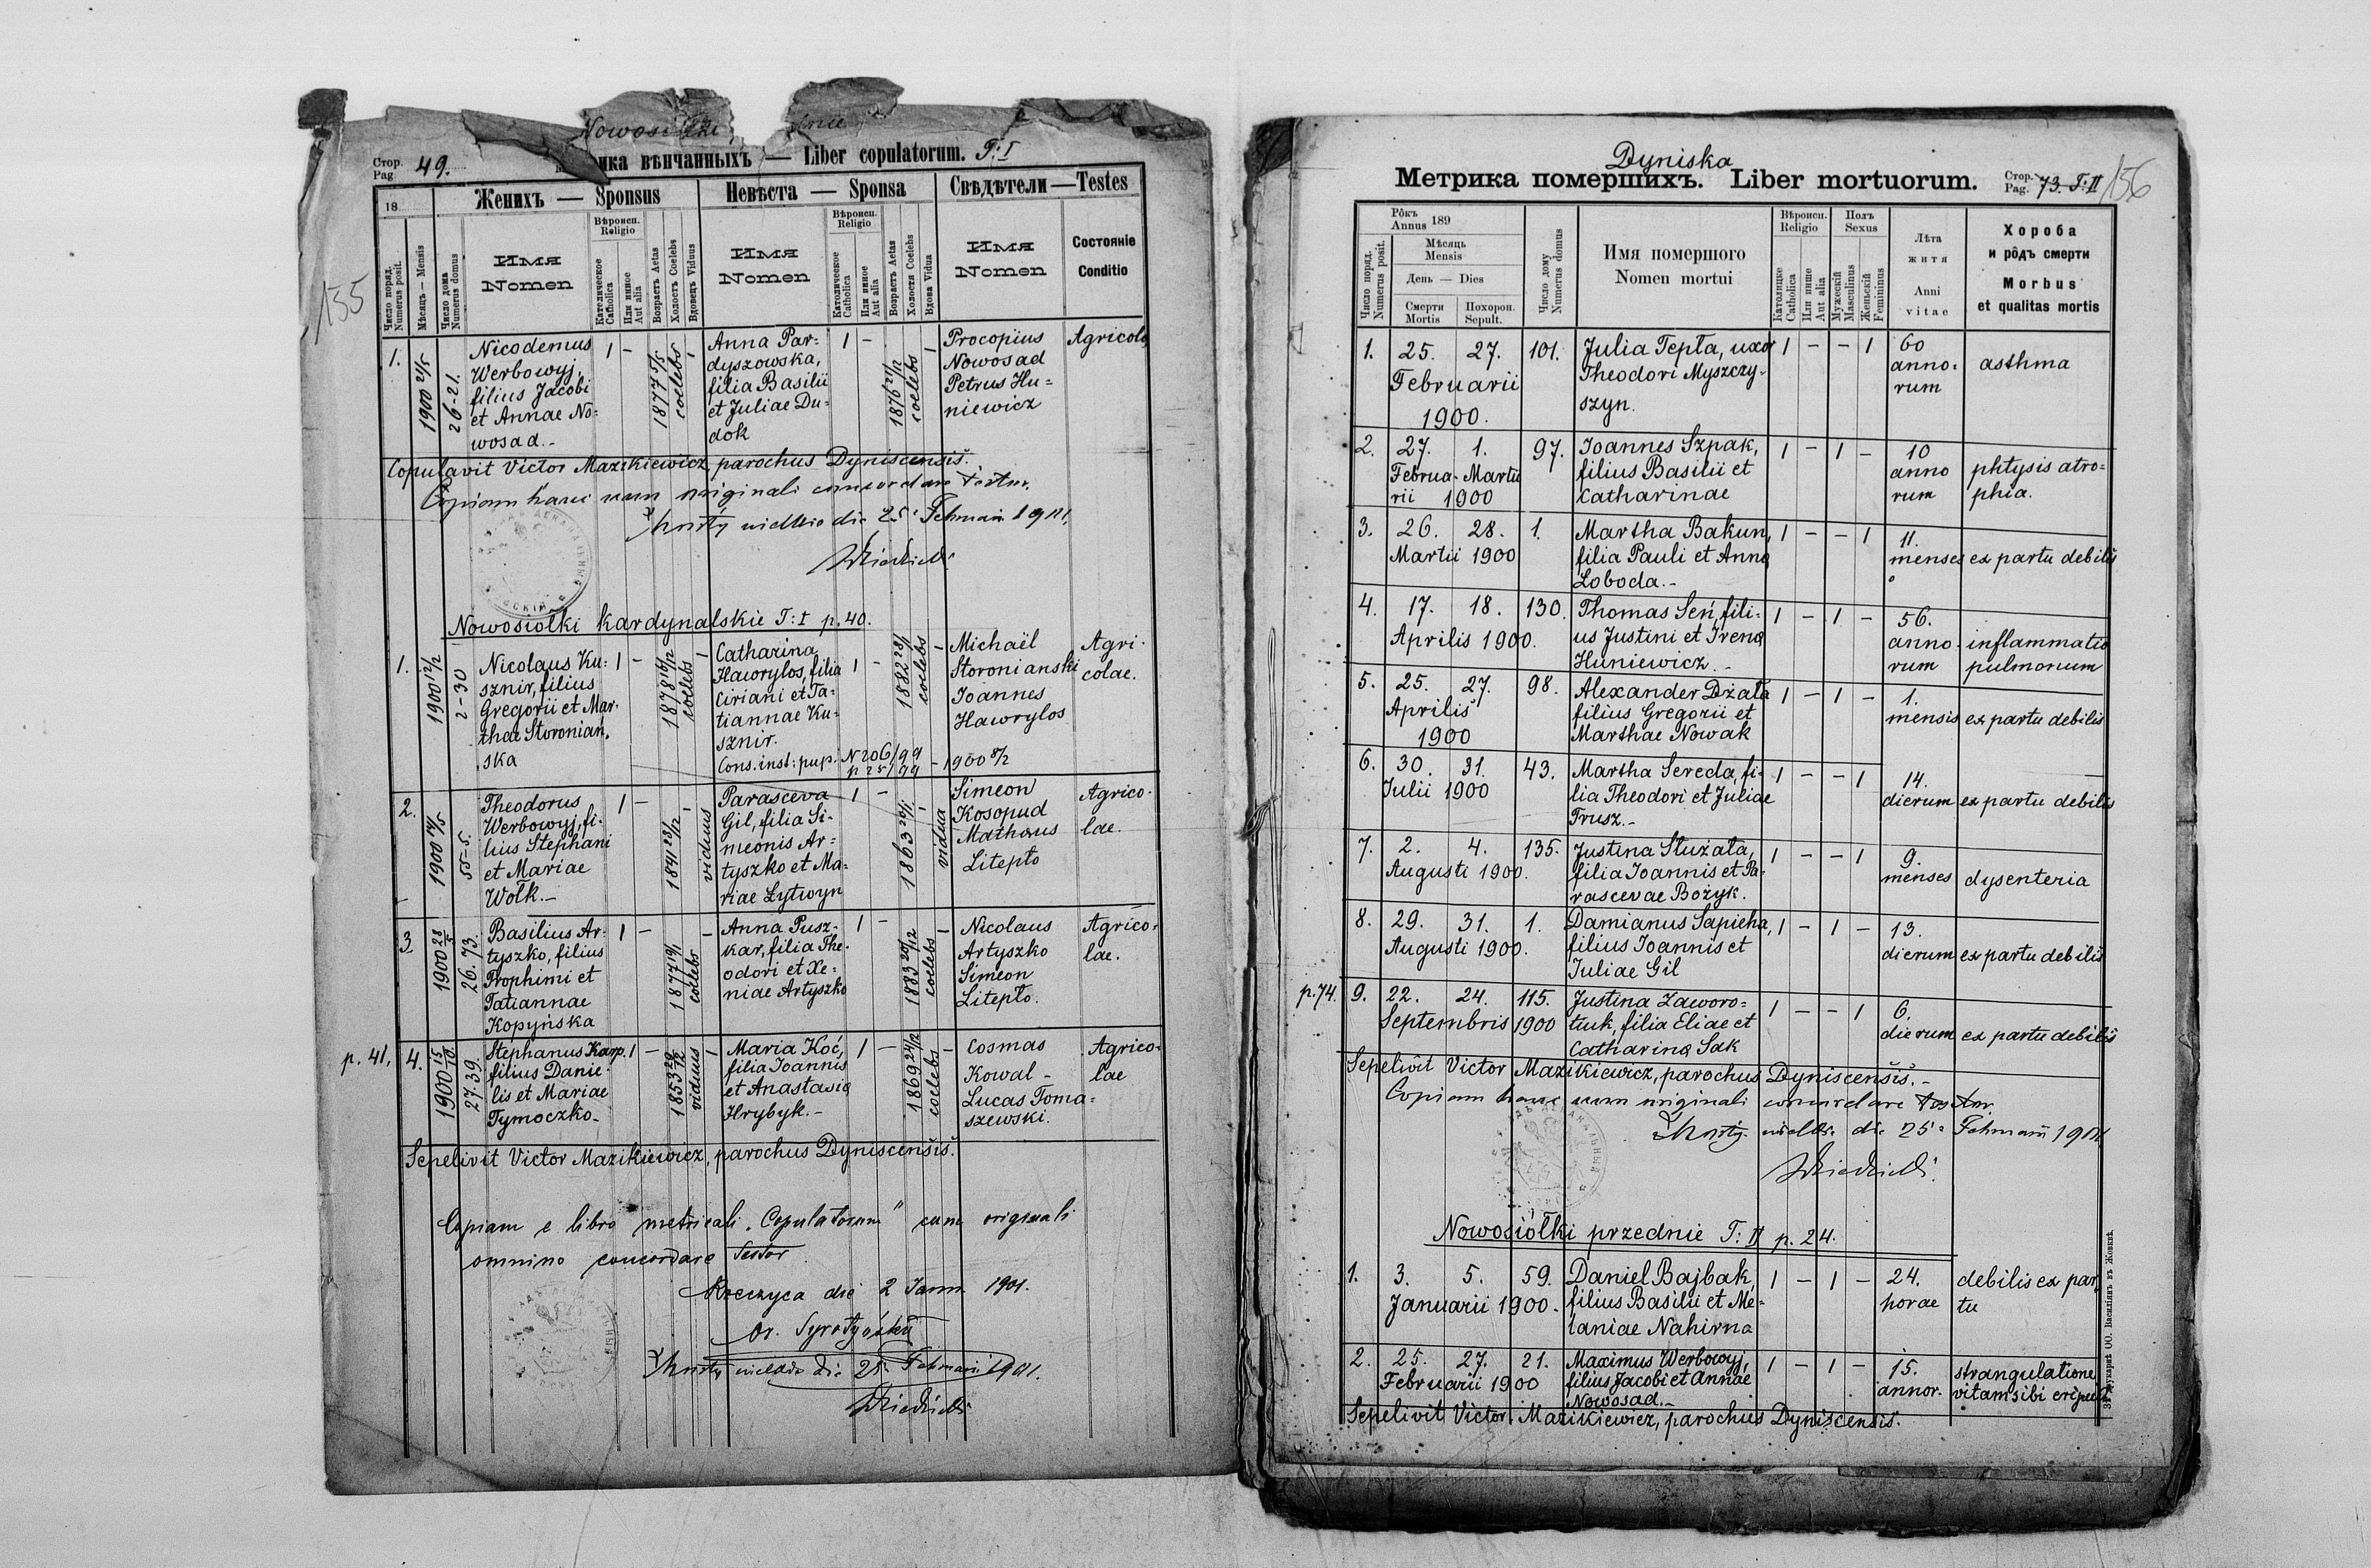 Nowosiółki
Стор. Pag. 49.
вѣнчанныхъ — Liber copulatorum. T: I
155
18
Женихъ — Sponsus
Невѣста — Sponsa
Свѣдѣтели — Testes
Число поряд. Numerus posit.
Мѣсяць — Mensis
Число дома Numerus domus
Имя Nomen
Вѣроисп. Religio
Католическое Catholica
Или инное Aut alia
Возрастъ Aetas
Холостъ Coelebs
Вдовецъ Viduus
Имя Nomen
Вѣроисп. Religio
Католическое Catholica
Или инное Aut alia
Возрастъ Aetas
Холостя Coelebs
Вдова Vidua
Имя Nomen
Состояніе Conditio
1. 1900 21/5 26-21.
Nicodemus
Werbowyj,
filius Jacobi
et Annae No=
wosad.-
1 - 1877 5/5 coelebs -
Anna Par=
dyszowska,
filia Basilii
et Juliae Du=
dok
1 - 1876 21/12 coelebs -
Procopius
Nowosad
Petrus Hu=
niewicz
Agricolae
Copulavit Victor Mazikiewicz, parochus Dyniscensis.
Copiam hanc cum originali concordare testor.
die 25 Februarii 1901.
Nowosiółki kardynalskie T: I p. 40.
1. 1900 12/2 2-30
Nicolaus Ku=
sznir, filius
Gregorii et Mar=
thae Storonian=
ska
1 - 1878 16/12 coelebs -
Catharina
Hawrylos, filia
Ciriani et Ta=
tiannae Ku=
sznir.
Cons. inst: pup. N 206/99 p 25/99 - 1900 8/2
1 - 1882 28/1 coelebs -
Michaël
Storonianski
Joannes
Hawrylos
Agri=
colae.
2. 1900 14/5 55-5.
Theodorus
Werbowyj, fi=
lius Stephani
et Mariae
Wołk.-
1 - 1841 23/12 - viduus
Parasceva
Gil, filia Si=
meonis Ar=
tyszko et Ma=
riae Łytwyn
1 - 1863 20/1 - vidua
Simeon
Kosopud
Mathaeus
Litepto
Agrico=
lae.
3. 1900 28/5 26.73.
Basilius Ar=
tyszko, filius
Trophimi et
Tatiannae
Kopyńska
1 - 1877 19/1 coelebs -
Anna Pusz=
kar, filia The=
odori et Xe=
niae Artyszko
1 - 1883 20/12 coelebs -
Nicolaus
Artyszko
Simeon
Litepto.
Agrico=
lae.
p. 41. 4. 1900 15/10. 27.39.
Stephanus Karp.
filius Danie=
lis et Mariae
Tymoczko-
1 - 1853 28/12 viduus
Maria Koć,
filia Joannis
et Anastasia
Hrybyk.-
1 - 1869 24/12 coelebs -
Cosmas
Kowal -
Lucas Toma=
szewski.
Agrico=
lae
Sepelivit Victor Mazikiewicz, parochus Dyniscensis.
Copiam e libro metricali „Copulatorum" cum originali
omnino concordare testor
Rzeczyca die 2 Jann. 1901.
die 25 Februarii 1901.
Dyniska
Метрика помершихъ. Liber mortuorum.
Стор. Pag. 73. T: II
156
Рôкъ Annus 189
Число поряд. Numerus posit.
Мѣсяць Mensis
День — Dies
Смерти Mortis
Похорон. Sepult.
Число дому Numerus domus
Имя помершого
Nomen mortui
Вѣроисп. Religio
Католицке Catholica
Или инше Aut alia
Полъ Sexus
Мужескій Masculinus
Женьскій Femininus
Лѣта житя
Anni vitae
Хороба
и рôдъ смерти
Morbus
et qualitas mortis
1. 25. 27. 101.
Februarii
1900.
Julia Tepta, uxor
Theodori Myszczy-
szyn.
1 - - 1
60
anno=
rum
asthma
2. 27. 1. 97.
Februa- Martii
rii 1900
Joannes Szpak,
filius Basilii et
Catharinae
1 - 1 -
10
anno
rum
phtysis atro=
phia.
3. 26. 28. 1.
Martii 1900
Martha Bakun,
filia Pauli et Anna
Łoboda.-
1 - - 1
11.
menses
ex partu debilis
4. 17. 18. 130.
Aprilis 1900.
Thomas Seń, fili-
us Justini et Irena
Huniewicz.-
1 - 1 -
56.
anno-
rum
inflammatio
pulmonum
5. 25. 27. 98.
Aprilis
1900
Alexander Dżała
filius Gregorii et
Marthae Nowak
1 - 1 -
1.
mensis
ex partu debilis
6. 30. 31. 43.
Julii 1900
Martha Sereda, fi-
lia Theodori et Juliae
Trusz.-
1 - - 1
14.
dierum
ex partu debilis
7. 2. 4. 135.
Augusti 1900.
Justina Służała,
filia Joannis et Pa-
rascevae Bożyk.
1 - - 1
9.
menses
dysenteria
8. 29. 31. 1.
Augusti 1900.
Damianus Sapieha,
filius Joannis et
Juliae Gil
1 - 1 -
13.
dierum
ex partu debilis
p. 74. 9. 22. 24. 115.
Septembris 1900
Justina Zaworo=
tiuk, filia Eliae et
Catharina Sak
1 - - 1
6.
dierum
ex partu debilis
Sepelivit Victor Mazikiewicz, parochus Dyniscensis.-
Copiam hanc cum originali concordare testor.
die 25 Februarii 1901.
Nowosiółki przednie T: II p. 24.
1. 3. 5. 59.
Januarii 1900.
Daniel Bajbak,
filius Basilii et Me=
laniae Nahirna
1 - 1 -
24.
horae
debilis ex par
tu
2. 25. 27. 21.
Februarii 1900
Maximus Werbowyj,
filius Jacobi et Annae
Nowosad.-
1 - 1 -
15.
annor.
strangulatione
vitam sibi eripuit
Sepelivit Victor Mazikiewicz, parochus Dyniscensis.
Зъ друкарнѣ ОО. Василіянъ въ Жовквѣ.